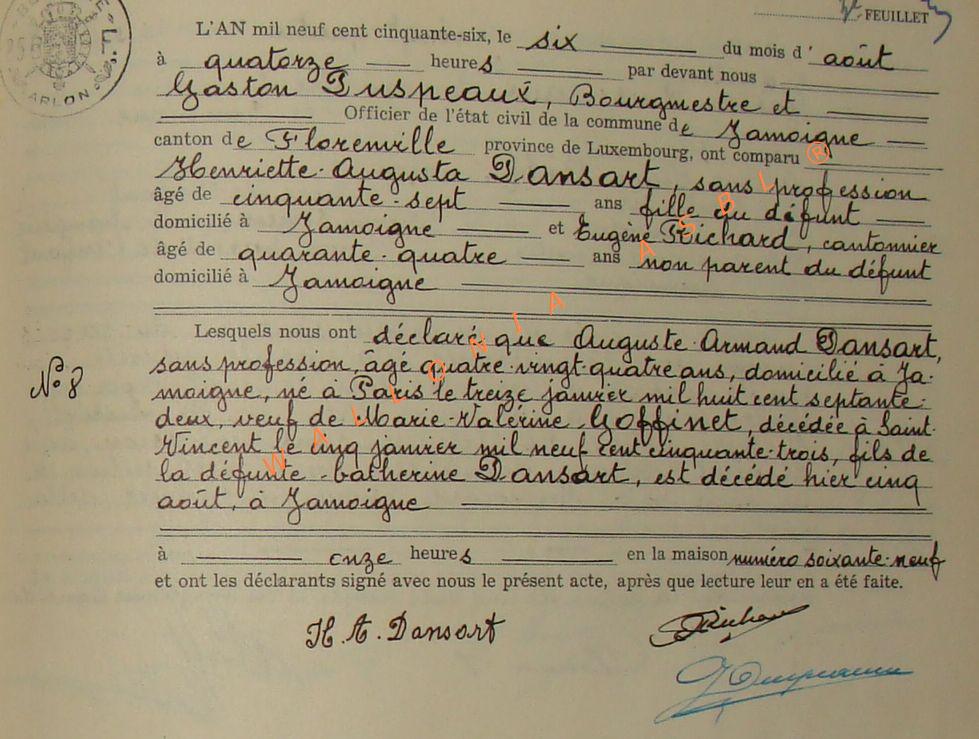 FEUILLET
ARLON
L'AN mil neuf cent cinquante-six, le six du mois d' août
à quatorze heures par devant nous
Gaston Puspeaux, Bourgmestre et
Officier de l'état civil de la commune de Jamoigne
canton de Florenville province de Luxembourg, ont comparu
Henriette-Augusta Dansart, sans profession
âgé de cinquante-sept ans fille du défunt
domicilié à Jamoigne et Eugène Richard, cantonnier
âgé de quarante-quatre ans non parent du défunt
domicilié à Jamoigne
Lesquels nous ont déclaré que Auguste-Armand Dansart,
N° 8
sans profession, âgé quatre-vingt-quatre ans, domicilié à Ja-
moigne, né à Paris le treize janvier mil huit cent septante-
deux, veuf de Marie-Valérine Goffinet, décédée à Saint-
Vincent le cinq janvier mil neuf cent cinquante-trois, fils de
la défunte Catherine Dansart, est décédé hier cinq
août, à Jamoigne
à onze heures en la maison numéro soixante-neuf
et ont les déclarants signé avec nous le présent acte, après que lecture leur en a été faite.
H. A. Dansart
WALLONIA ASBL ®